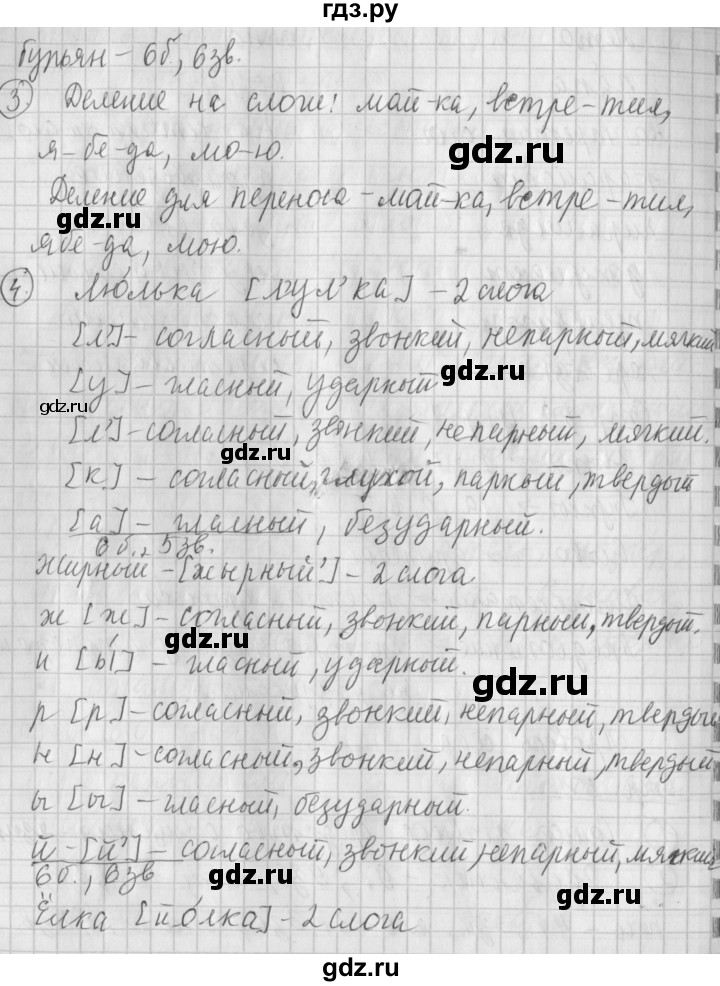 гдз.ру
бурьян – 6б, 6 зв.
3 Деление на слоги: май-ка, встре-тил,
я-бе-да, мо-ю.
gdz.ru gdz.ru
Деление для переноса – май-ка, встре-тил,
gdz.ru gdz.ru
ябе-да, мою.
4. Лю́лька [л'ул'ка] – 2 слога
gdz.ru
[л'] – согласный, звонкий, непарный, мягкий
gdz.ru
[у] – гласный, ударный
gdz.ru
[л'] – согласный, звонкий, непарный, мягкий.
gdz.ru
[к] – согласный, глухой, парный, твердый
[а] – гласный, безударный.
gdz.ru
6 б., 5 зв.
жирный – [жырный'] – 2 слога
gdz.ru
ж [ж] – согласный, звонкий, парный, твердый.
gdz.ru
и [ы́] – гласный, ударный.
gdz.ru
р [р] – согласный, звонкий, непарный, твердый
н [н] – согласный, звонкий, непарный, твердый
gdz.ru
ы [ы] – гласный, безударный.
й – [й'] – согласный, звонкий, непарный, мягкий
6 б., 6 зв
gdz.ru
gdz.ru
Ёлка [йо́лка] – 2 слога
gdz.ru
gdz.ru